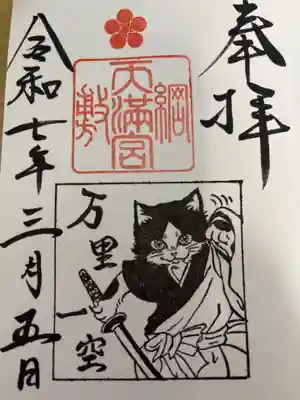 奉拝
綱敷天満宮
万里一空
令和七年三月五日